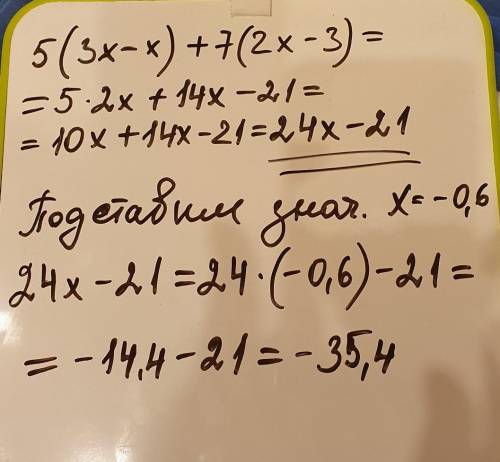 5(3x-x)+7(2x-3)=
=5·2x+14x-21=
=10x+14x-21=24x-21
Подставим знач. x=-0,6
24x-21=24·(-0,6)-21=
=-14,4-21=-35,4